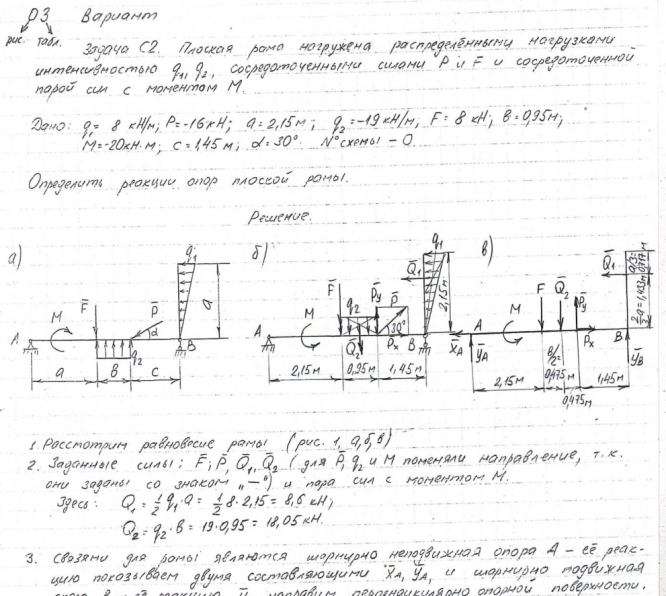 03 Вариант
рис. табл.
Задача С2. Плоская рама нагружена распределёнными нагрузками
интенсивностью q1, q2, сосредоточенными силами P и F и сосредоточенной
парой сил с моментом M.
Дано: q1 = 8 кН/м; P=-16кН; a=2,15м; q2=-19 кН/м, F=8 кН; в=0,95м;
M=-20кН·м; c=1,45м; α=30°. N°схемы - 0
Определить реакции опор плоской рамы.
Решение.
а) q1 F̄ M P̄ α a A B q2 a в c
б) q1 Q̄1 F̄ q2 P̄y P̄ M 30° 2,15м A Q̄2 Px B 2,15м 0,95м 1,45м
в) a/3= м Q̄1 F̄ Q̄2 M P̄y 2/3a=1,433м A X̄A Px B ȲA в/2 ȲB 2,15м 0,475м 0,475м 1,45м
1. Рассмотрим равновесие рамы (рис. 1, а,б,в)
2. Заданные силы: F̄, P̄, Q̄1, Q̄2 (для P̄, q2 и M поменяли направление, т.к.
они заданы со знаком „—") и пара сил с моментом M.
Здесь: Q1 = 1/2 q1·a = 1/2 8·2,15 = 8,6 кН;
Q2 = q2·в = 19·0,95 = 18,05 кН.
3. Связями для рамы являются шарнирно неподвижная опора А – её реак-
цию показываем двумя составляющими X̄A, ȲA, и шарнирно подвижная
направим перпендикулярно опорной поверхности.